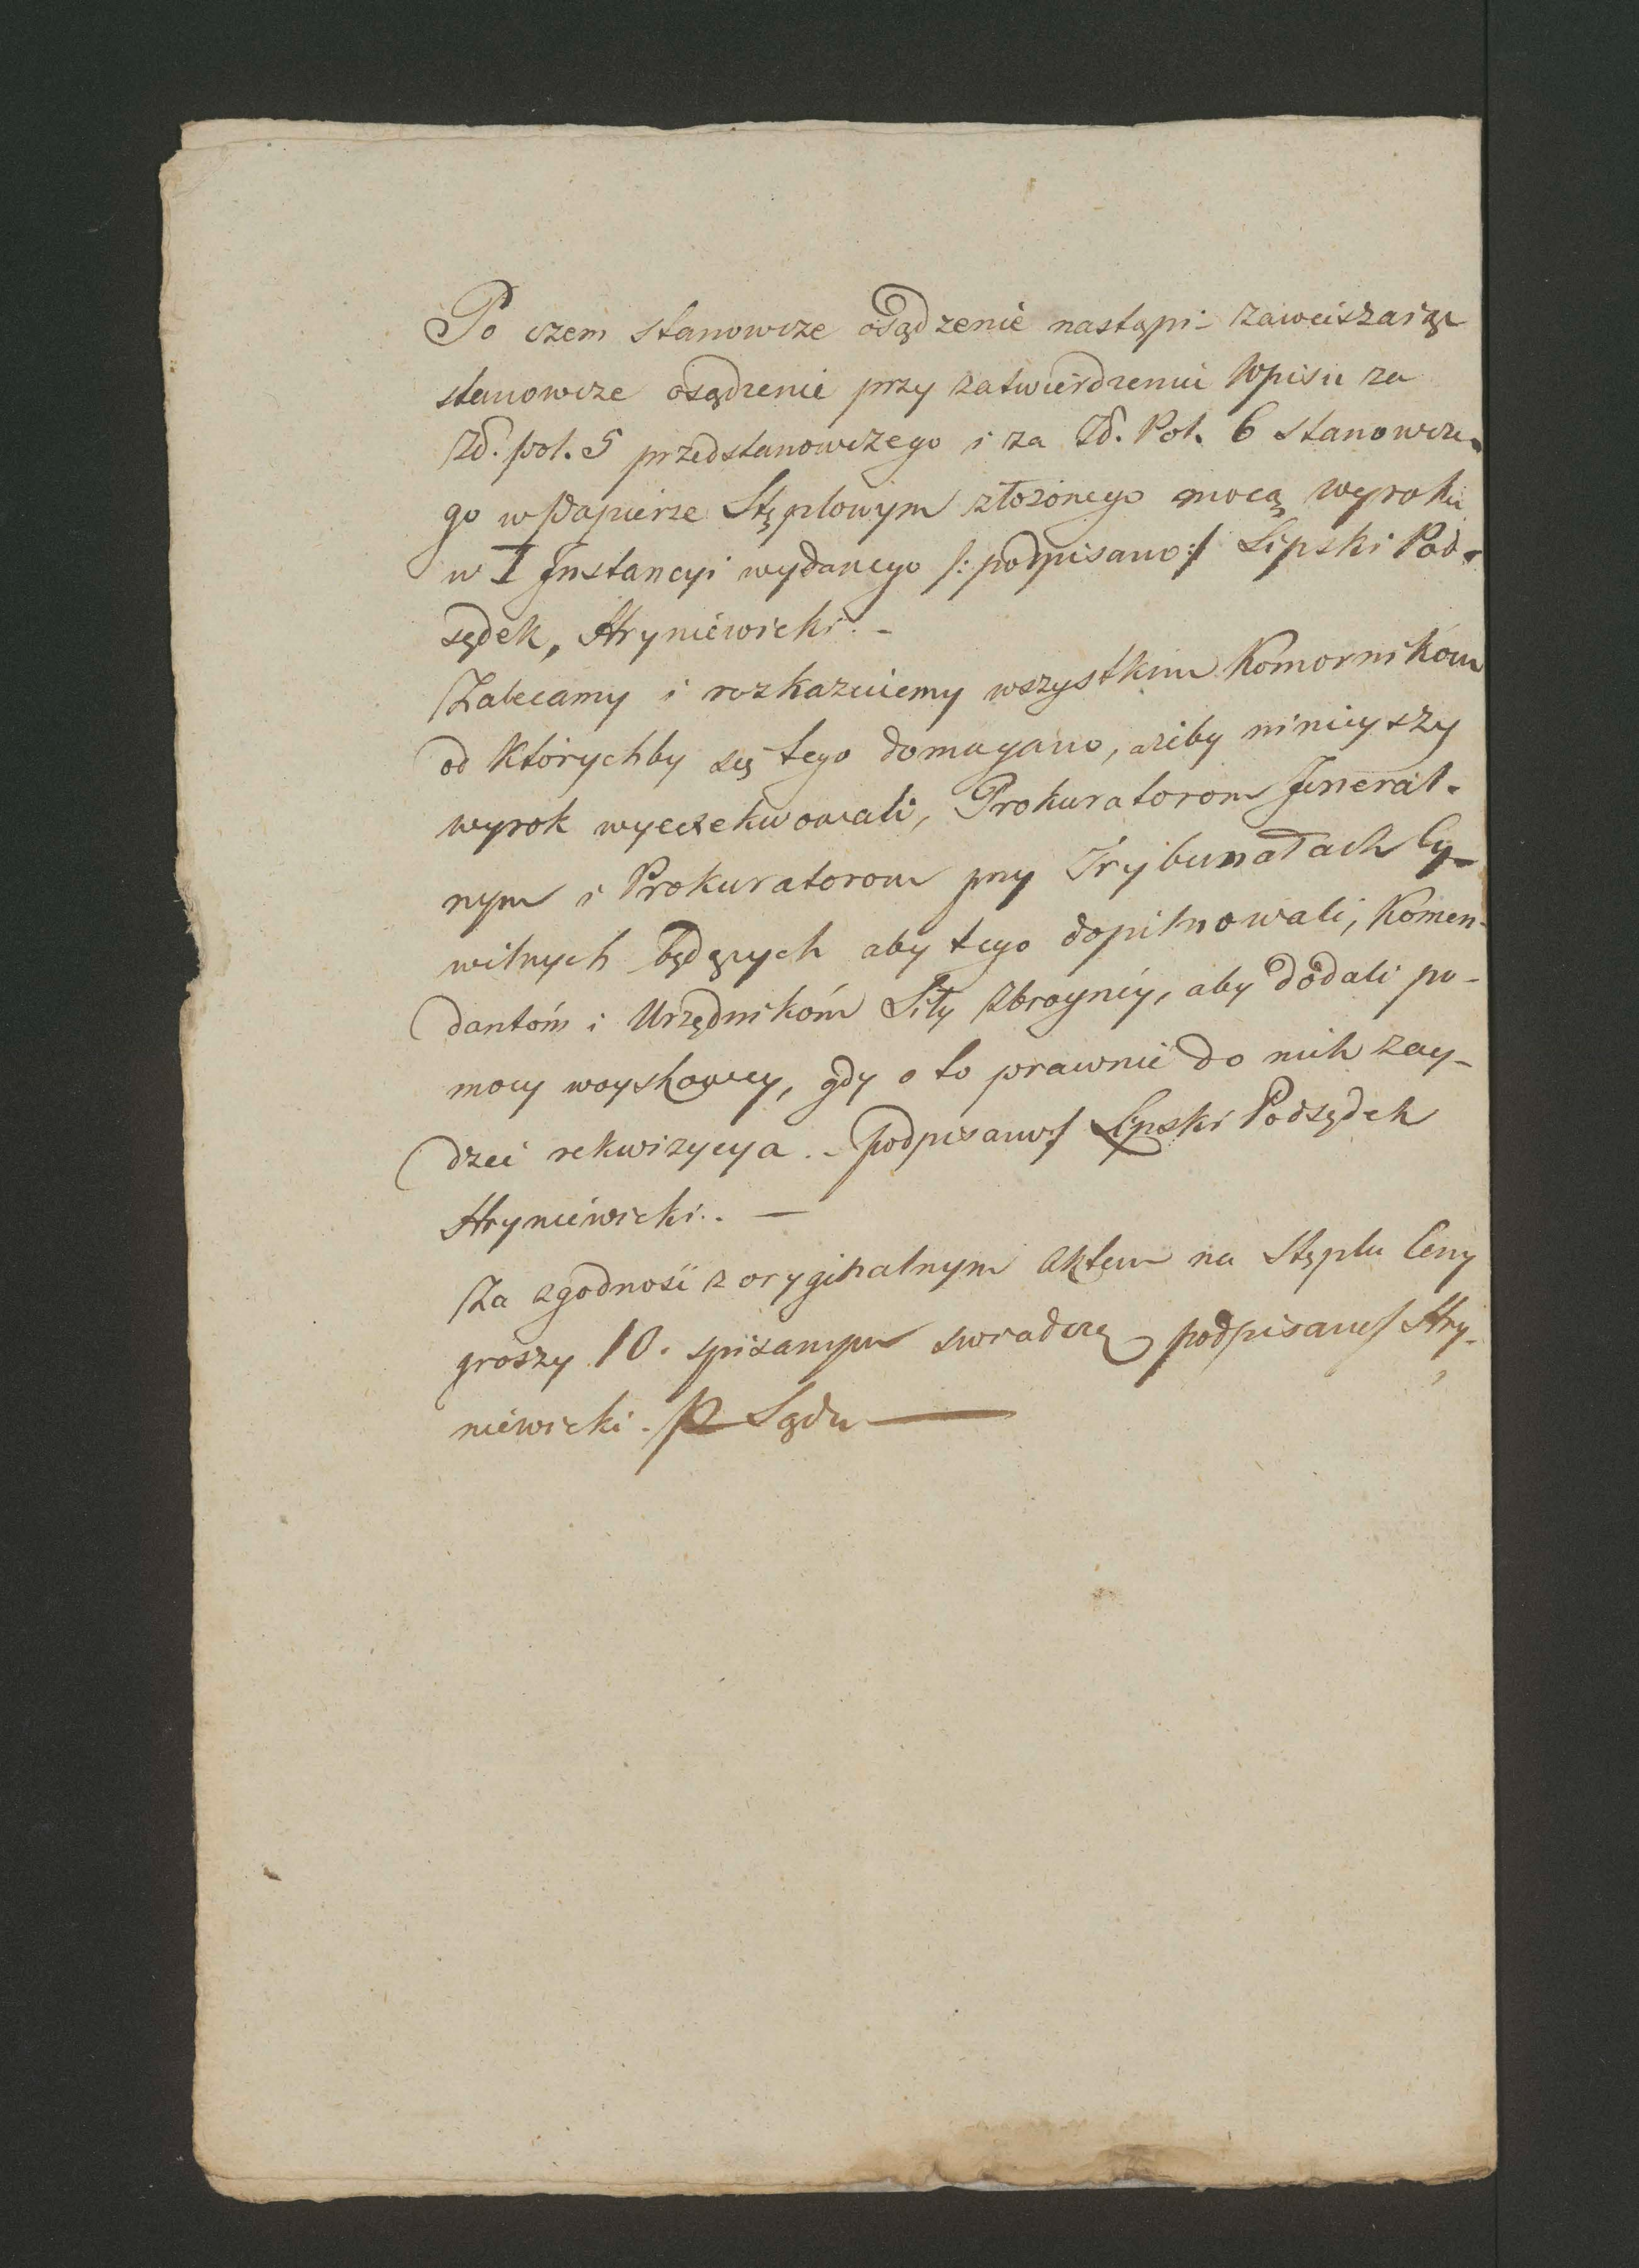 Po czem stanowcze osądzenie nastąpi - zawieszaiąc
stanowcze osądzenie przy zatwierdzeniu Wpisu za
Zł. pol. 5 przedstanowczego i za Zł. Pol. 6 stanowcze-
go w Papierze Stęplowym złożonego mocą wyroku
w I Instancyi wydanego /: podpisano :/ Lipski Pod-
sędek, Hryniewicki. -
Zalecamy i rozkazuiemy wszystkim Komornikom
od którychby się tego domagano, ażeby ninieyszy
wyrok wyexekwowali, Prokuratorom Jeneral-
nym i Prokuratorom przy Trybunałach Cy-
wilnych będących aby tego dopilnowali, Komen-
dantóm i Urzędnikóm Siły Zbroyney, aby dodali po-
mocy woyskowey, gdy o to prawnie do nich zay-
dzei rekwizycya. - podpisano/ Lipski Podsędek
Hryniewicki. . —
Za zgodność z oryginalnym Aktem na Stęplu Ceny
groszy 10. spisanym swiadczę podpisano/ Hry-
niewicki. P Sądu —